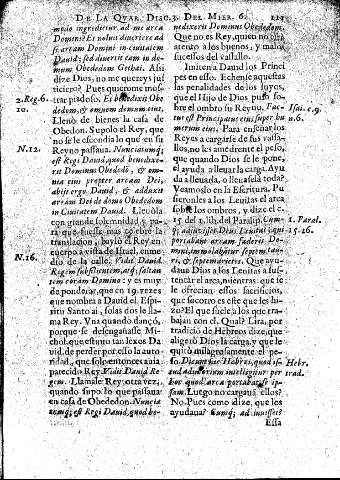 DE LA QVAR. DISC. 3. DEL MIER. 6. 
modo ingredietur ad me arca
Domini? Et noluit diuertere ad
se arcam Domini in ciuitatem
Dauid; sed diuertit eam in do-
mum Obededom Gethæi. Assi
dize Dios, no me quereys jus-
ticiero? Pues quierome mos-
trar piadoso. Et benedixit Obe
dedom, & omnem domum eius.
Llenò de bienes la casa de
Obedon. Supolo el Rey, que
no se le escondia lo que en su
Reyno passaua. Nunciatumq;
est Regi Dauid, quod benedixe-
rit Dominus Obededõ, & om-
nia eius propter arcam Dei,
abijt ergo Dauid, & adduxit
arcam Dei de domo Obededom
in Ciuitatem Dauid. Lleuòla
con grande solemnidad, y pa-
ra que fuesse mas celebre la
translacion, baylò el Rey en
cuerpo a vista de Israel, en me
dio de la calle. Vidit Dauid
Regem subsilientem, atq; saltan
tem coram Domino: y es muy
de ponderar, que en 19. vezes
que nombra a Dauid el Espi-
ritu Santo ai, solas dos le lla-
ma Rey. Vna quando dançò,
porque se desengañasse Mi-
chol, que estuuo tan lexos Da
uid, de perder por esso la auto
ridad, que solo entonces auia
parecido Rey. Vidit Dauid Re
gem. Llamale Rey otra vez,
quando supo lo que passaua
en casa de Obededon. Nuncia
tumq; est Regi Dauid, quod be-
2. Reg. 6.
10.
N. 12.
N. 16.
nedixerit Dominus Obededom.
Que no es Rey, quien no està
atento a los buenos, y malos
sucessos del vassallo.
Imiten a Dauid los Princi
pes en esso. Echense aquestas
las penalidades de los suyos,
que el Hijo de Dios puso so-
bre el ombro su Reyno. Fac-
tus est Principatus eius super hu
merum eius. Para enseñar los
Reyes a cargarse de sus vassa-
llos, no les amedrente el peso,
que quando Dios se le pone,
el ayuda a lleuar la carga. Ayu
da a lleuarla, o lleuasela toda?
Veamoslo en la Escritura. Pu
sieronles a los Leuitas el arca
sobre los ombros, y dize el c.
15. del lib. 1. del Paralip. Cum-
q; adiuuisset Deus Leuitas, qui
portabant arcam fœderis Do-
mini, immolabantur septem tau-
ri, & septem arietes. Que ayu-
daua Dios a los Leuitas a sus-
tentar el arca, mientras que se
le ofrecian essos sacrificios,
que socorro es este que les hi-
zo? El que suele a los que tra-
bajan con el. Qual? Lira, por
tradicion de Hebreos dize, que
aligerò Dios la carga, y que le
quitò milagrosamente el pe-
so. Dicunt hic Hebræi, quod is-
tud adiutorium intelligitur per
hoc quod arca portabat se ip-
sam. Luego no cargauã ellos?
No. Pues como dize, que les
ayudaua? Cumq; ad iuuisset?
Essa
Isai. c. 9.
n. 6.
1. Paral.
15-26.
Hebr.
trad.